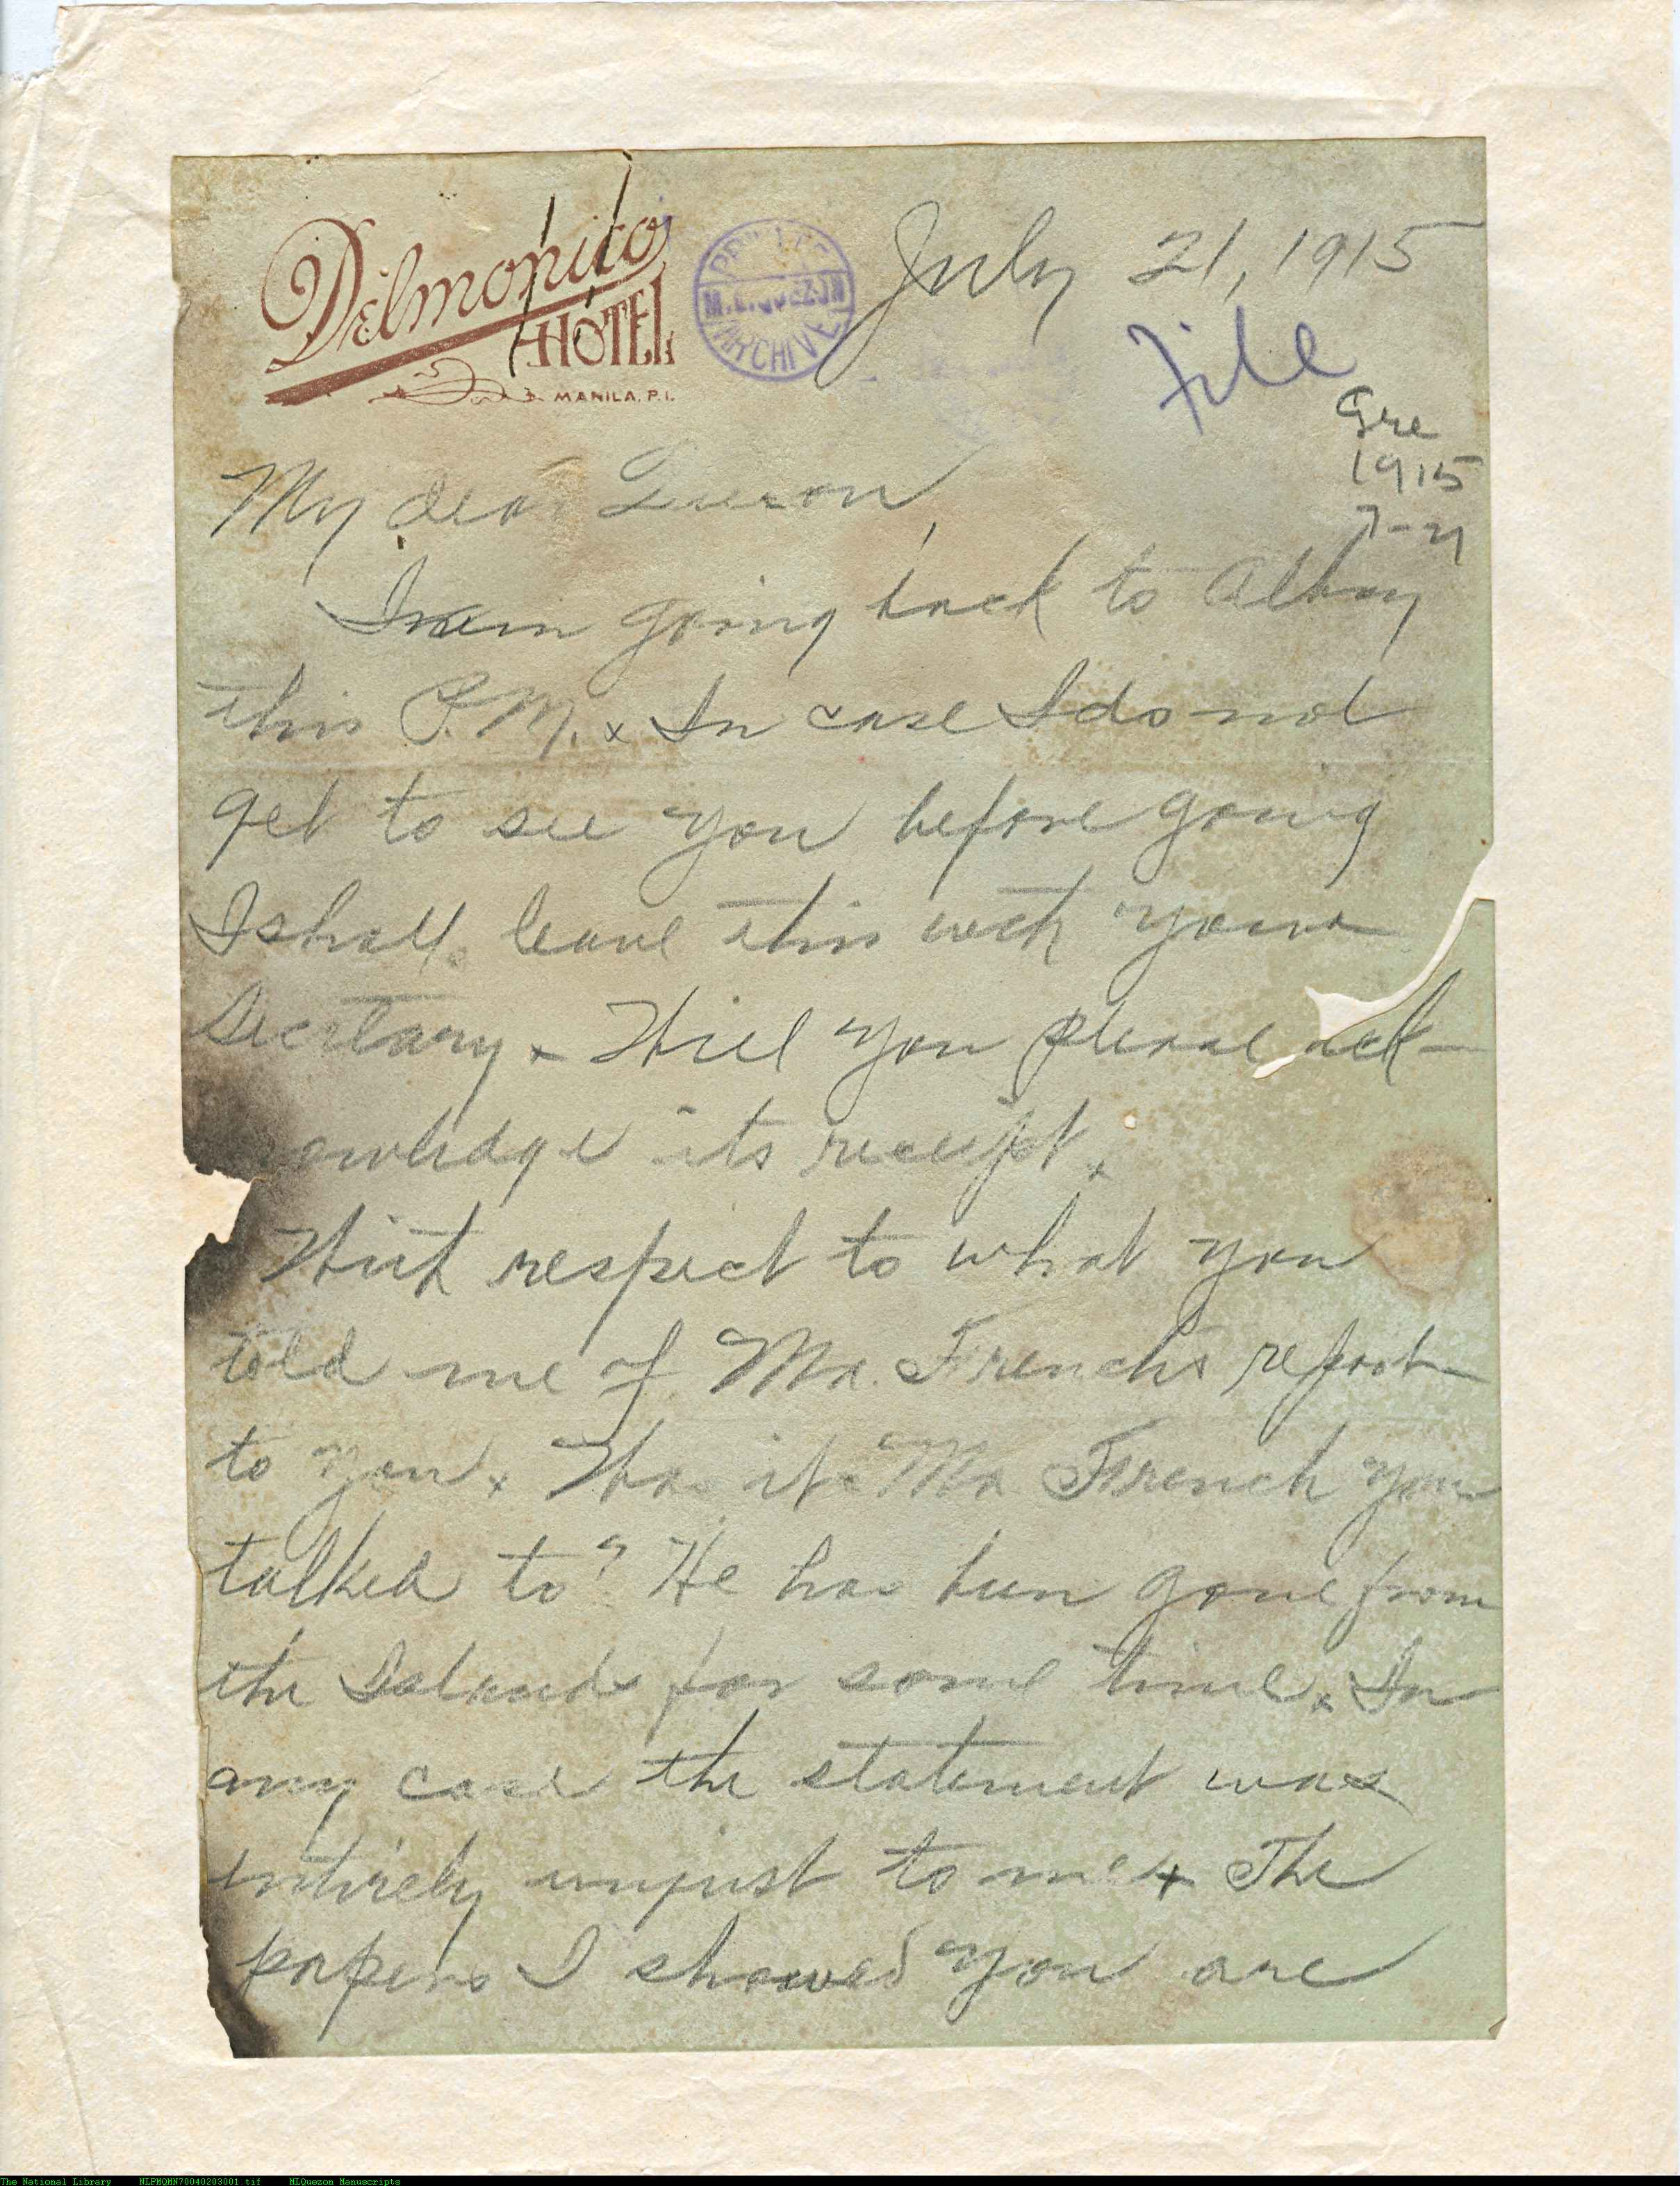 Delmonico
HOTEL
MANILA, P.I.
ARCHIVE
July 21, 1915
File
Gre
1915
7-21
My dear Quezon,
I am going back to Albay
this P.M. x In case I do not
get to see you before going
I shall leave this with your
Secretary x Will you please ack-
nowledge its receipt x
With respect to what you
told me of Mr. French's report
to you x Was it Mr French you
talked to? He has been gone from
the Islands for some time x In
any case the statement was
entirely unjust to me x The
papers I showed you are
The National Library NLPMQMN70040203001.tif MLQuezon Manuscripts